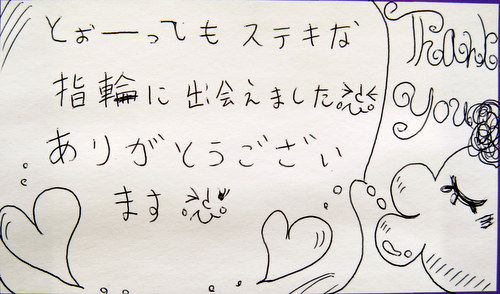 とぉーってもステキな
指輪に出会えました
ありがとうござい
ます
Thank
You